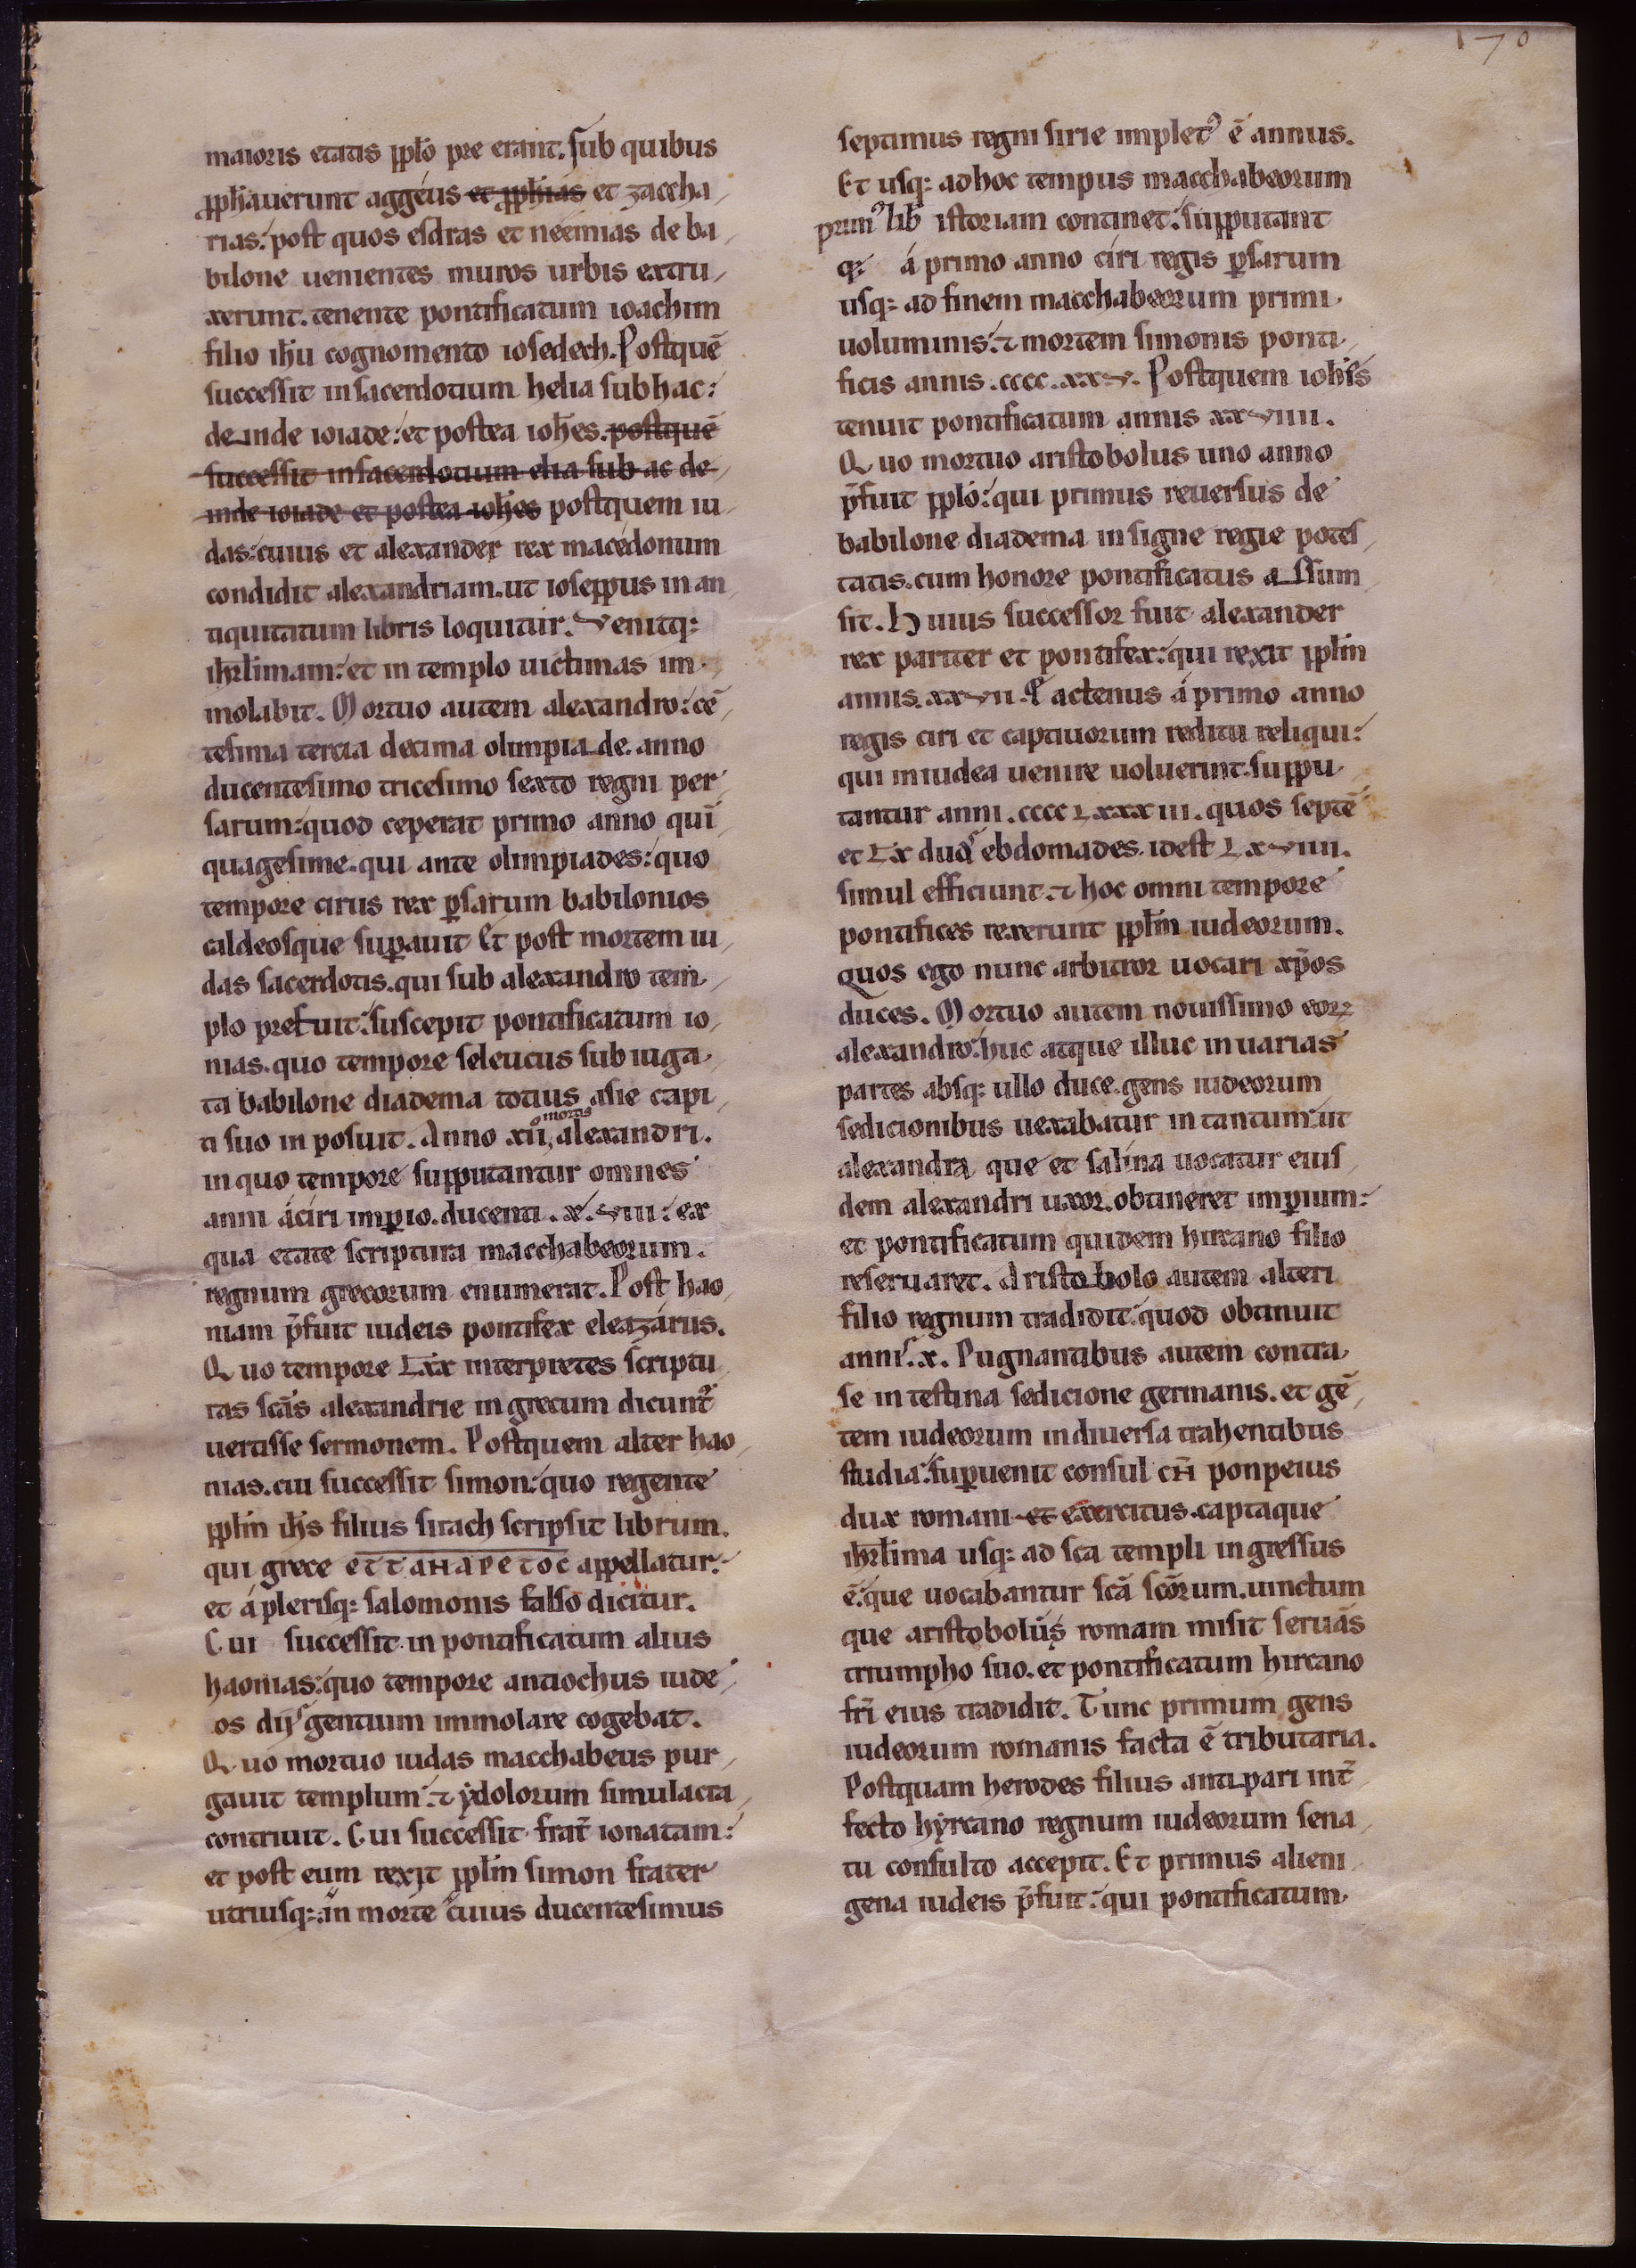 170
maioris etatis pplo̅ pre erant. sub quibus
pph̅auerunt aggéus et pph̅ias et zaccha
rias: post quos esdras et néémias de ba
bilone uenientes muros urbis extru
xerunt. tenente pontificatum ioachim
filio ih̅u cognomento iosedech. Postque̅
successit in sacerdotium helia sub hac:
de inde ioiade: et postea ioh̅es. postque̅
successit in sacerdotium elia sub ac de
inde ioiade et postea ioh̅es postquem iu
das: cuius et alexander rex macédonum
condidit alexandriam. ut ioseppus in an
tiquitatum libris loquitur. Venitq:
ihr̅limam: et in templo uictimas im
molabit. Mortuo autem alexandro: ce̅
tesima tercia decima olimpia de. anno
ducentesimo tricesimo sexto regni per
sarum: quod ceperat primo anno qui̅
quagesime. qui ante olimpiades: quo
tempore cirus rex ꝑsarum babilonios
caldeosque suꝑauit Et post mortem iu
das sacerdotis. qui sub alexandro tem
plo prefuit: suscepit pontificatum io
nias. quo tempore seleucus subiuga
ta babilone diadema totius asie capi
ti suo in posuit. Anno xii, alexandri.
mortis
in quo tempore supputantur omnes
anni á ciri imꝑio. ducenti. x. viii: ex
qua etate scriptura macchabeorum.
regnum grecorum enumerat. Post hao
niam p̅fuit iudeis pontifex eleazárus.
Quo tempore Lxx interpretes scriptu
ras sc̅as alexandrie in grecum dicunt᷑
uertisse sermonem. Postquem alter hao
nias. cui successit simon: quo regente
ppl̅m ih̅s filius sirach scripsit librum.
qui grece ETTANAPETOC appellatur:
et á plerisq: salomonis falso dicitur.
Cui successit in pontificatum alius
haonias: quo tempore antiochus iude
os dijs gentium immolare cogebat.
Quo mortuo iudas macchabeus pur
gauit templum: ⁊ ydolorum simulacra
contriuit. Cui successit frat̅ ionatam:
et post eum rexit ppl̅m simon frater
utriusq: in morte cuius ducentesimus
septimus regni sirie implet᷒ e̅ annus.
Et usq: ad hoc tempus macchabeorum
prim᷒ lib̅ istoriam continet: supputant
q: á primo anno ciri regis ꝑsarum
usq: ad finem macchabeorum primi
uoluminis: ⁊ mortem simonis ponti
ficis annis. cccc. xxv. Postquem ioh̅es
tenuit pontificatum annis xxviiii.
Quo mortuo aristobolus uno anno
p̅fuit pplo̅: qui primus reuersus de
babilone diadema in signe regie potes
tatis. cum honore pontificatus assum
sit. Huius successor fuit alexander
rex pariter et pontifex: qui rexit ppl̅m
annis. xxvii. Hactenus á primo anno
regis ciri et captiuorum reditu reliqui:
qui in iudea uenire uoluerint. suppu
tantur anni. cccc Lxxxiii. quos septe̅
et Lx duas ebdomades. idest Lxviiii.
simul efficiunt. ⁊ hoc omni tempore
pontifices rexerunt ppl̅m iudeorum.
quos ego nunc arbitror uocari xp̅os
duces. Mortuo autem nouissimo eorꝝ
alexandro: huc atque illuc in uarias
partes absq: ullo duce. gens iudeorum
sedicionibus uexabatur in tantum: ut
alexandra que et salina uocatur eius
dem alexandri uxor. obtineret imꝑium:
et pontificatum quidem hircano filio
reseruaret. Aristobolo autem alteri
filio regnum tradidit: quod obtinuit
annis. x. Pugnantibus autem contra
se in testina sedicione germanis. et ge̅
tem iudeorum in diuersa trahentibus
studia: suꝑuenit consul cn̅ ponpeius
dux romani et exercitus. captaque
ihr̅lima usq: ad sc̅a templi in gressus
e̅: que uocabantur sc̅a sc̅orum. uinctum
que aristobolus romam misit serua̅s
triumpho suo. et pontificatum hircano
fr̅i eius tradidit. Tunc primum gens
iudeorum romanis facta e̅ tributaria.
Postquam herodes filius anti pari int̅
fecto hyrcano regnum iudeorum sena
tu consulto accepit. Et primus alieni
gena iudeis p̅fuit: qui pontificatum